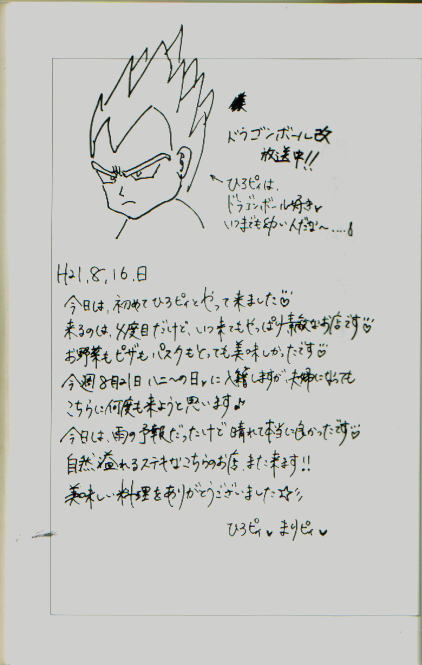 ドラゴンボール改
放送中!!
ひろピィは、
ドラゴンボール好き♥
いつまでも幼い人だな〜....!
H21.8.16.日
今日は、初めてひろピィとやって来ました♡
来るのは、4度目だけど、いつ来てもやっぱり素敵なお店です♡
お野菜もピザもパスタもとっても美味しかったです♡
今週8月21日ハニーの日♥に入籍しますが、夫婦になっても
こちらに何度も来ようと思います♪
今日は、雨の予報だったけど晴れて本当に良かったです♡
自然溢れるステキなこちらのお店、また来ます!!
美味しい料理をありがとうございました☆彡
ひろピィ♥ まりピィ♥